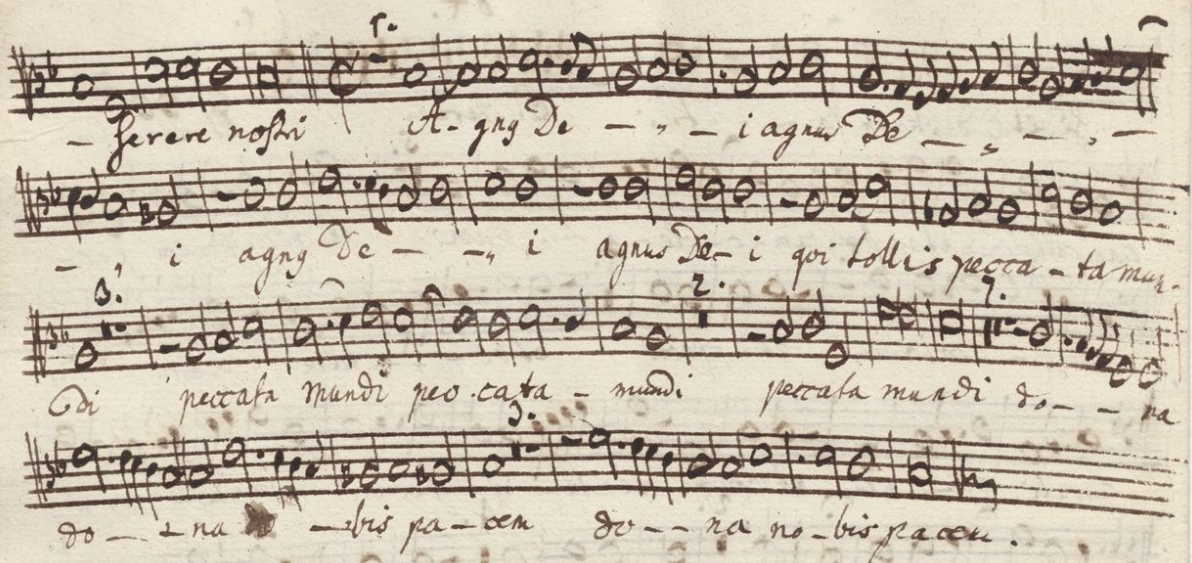 – serere nostri A-gnq De – „ – i agnus De – „ – „ –
– „ i agnq De – – „ i agnus De- i qui tollis pecca-ta mun-
3. 2.
di peccata mundi pec-cata – mundi peccata mundi do- - na
3.
do – – na – bis pa-cem do- - na no-bis pacem.